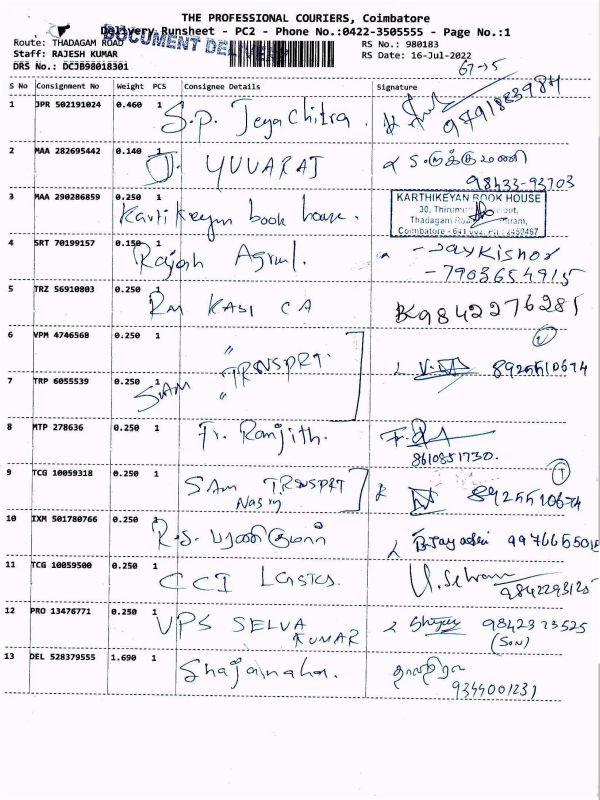 THE PROFESSIONAL COURIERS, Coimbatore
Delivery Runsheet - PC2 - Phone No.:0422-3505555 - Page No.:1
DOCUMENT DELIVERY
Route: THADAGAM ROAD RS No.: 980183
Staff: RAJESH KUMAR RS Date: 16-Jul-2022
DRS No.: DCJB98018301
S No Consignment No Weight PCS Consignee Details Signature
1 JPR 502191024 0.460 1 S.P. Jeya Chitra 9791883984
2 MAA 282695442 0.140 1 J. YUVARAJ
98433-93703
3 MAA 290286859 0.250 1 Kartikeyan book house.
KARTHIKEYAN BOOK HOUSE
Coimbatore
4 SRT 70199157 0.150 1 Rajesh Jaykishor
7903654915
5 TRZ 56910803 0.250 1 RM KASI CA 9842276281
6 VPM 4746568 0.250 1 " TRNSPRT. 8925510674
7 TRP 6055539 0.250 1 SAM "
8 MTP 278636 0.250 1 Fr. Ranjith.
8610851730.
9 TCG 10059318 0.250 1 SAM TRNSPRT 8925510674
10 IXM 501780766 0.250 1 R.S.
11 TCG 10059500 0.250 1 CCI 9842293125
12 PRO 13476771 0.250 1 VPS SELVA KUMAR 9842373525
(SON)
13 DEL 528379555 1.690 1
9344001231